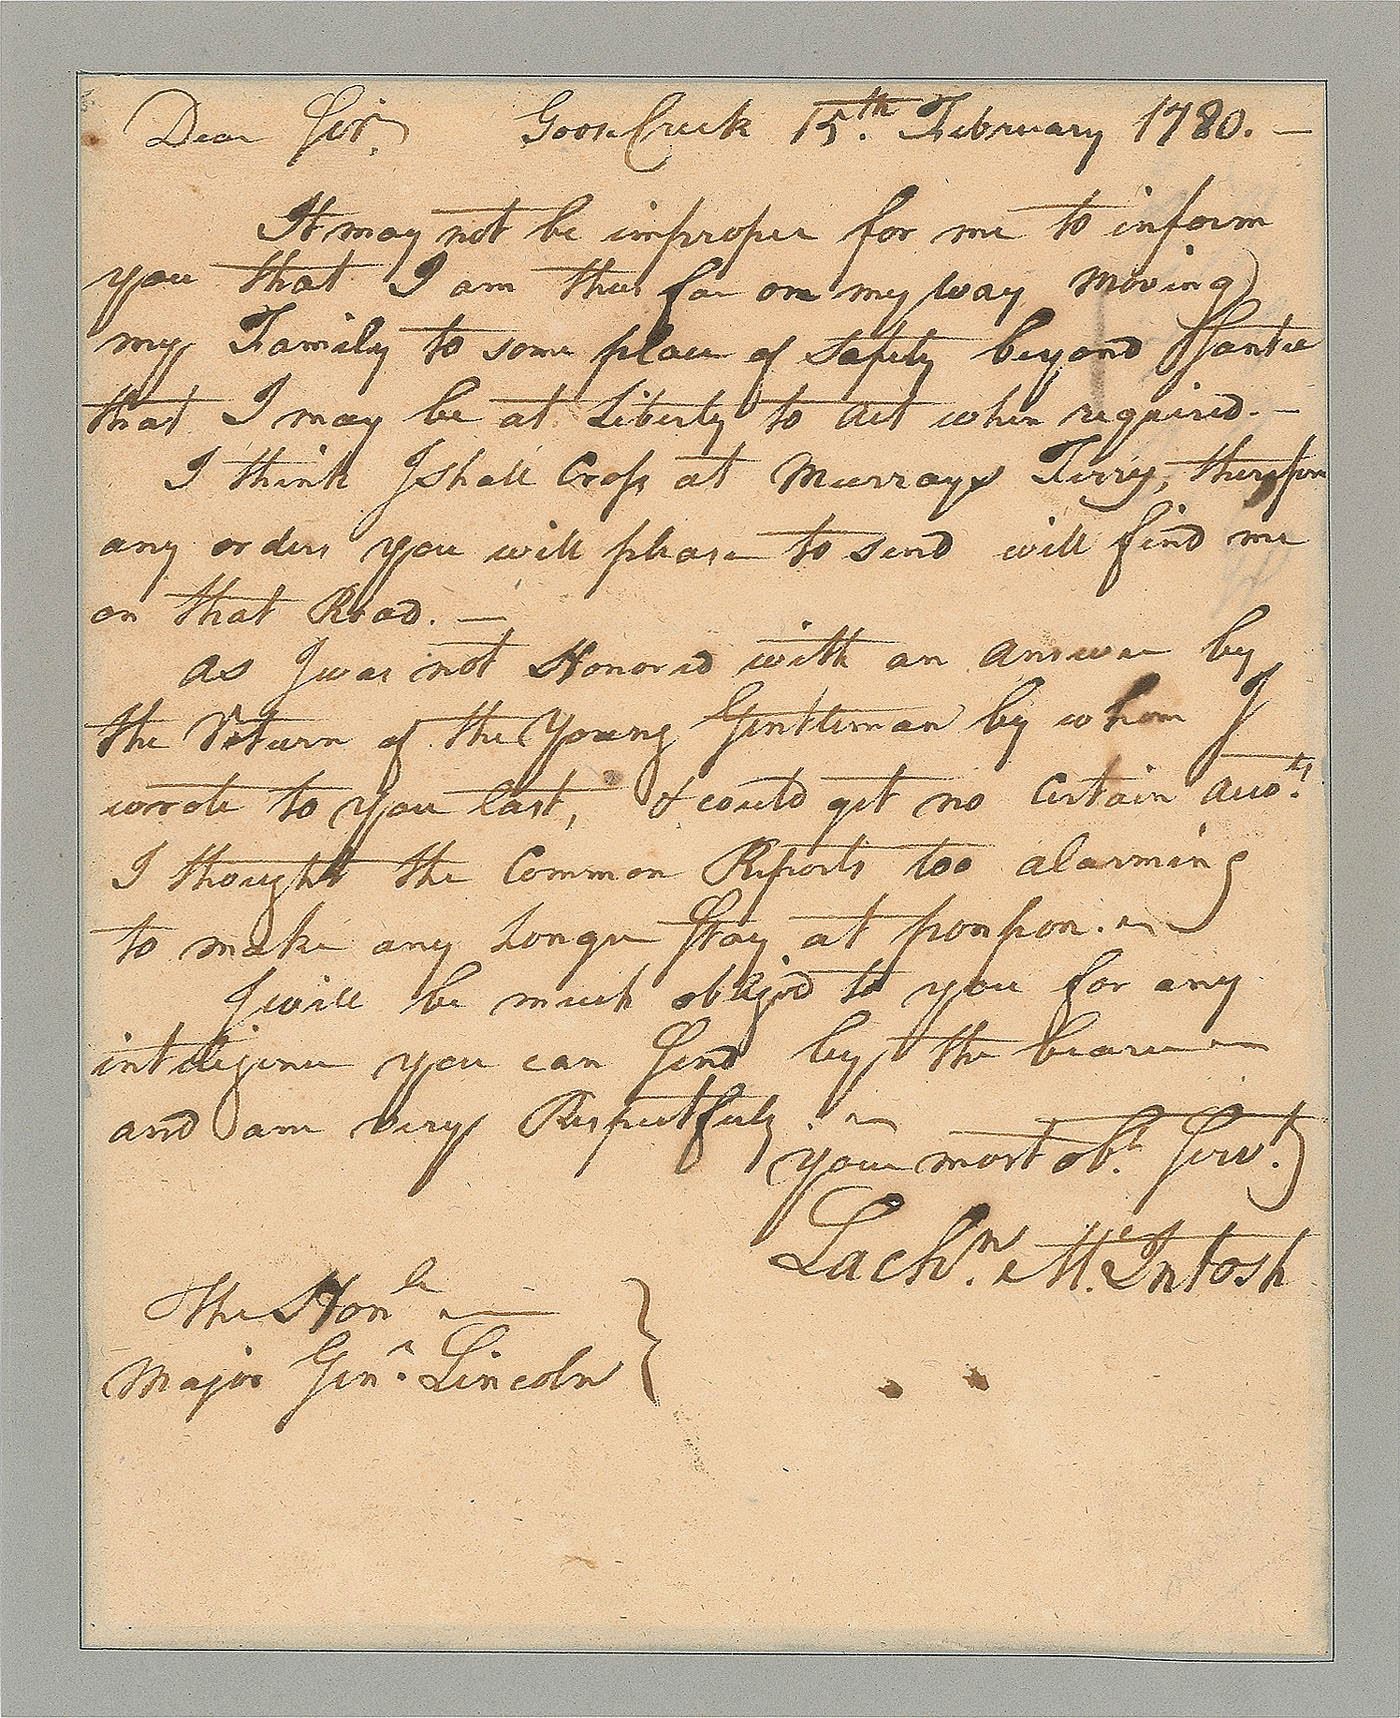 Dear Sir, Goose Creek 15.th February 1780. —
It may not be improper for me to inform
you that I am thus far on my way moving
my Family to some place of Safety beyond Santee
that I may be at Liberty to Act when required. —
I think I shall Cross at Murrays Ferry, therefore
any orders you will please to send will find me
on that Road. —
As I was not Honored with an Answer by
the Return of the Young Gentleman by whom I
wrote to you last, & could get no Certain Acco.ts
I thought the Common Reports too alarming
to make any Longer Stay at ponpon. —
I will be much obliged to you for any
inteligence you can Send by the bearer —
and am very Respectfuly. —
your most ob.t Serv.t
Lach.n McIntosh
The Hon.le —
Major Gen.l Lincoln